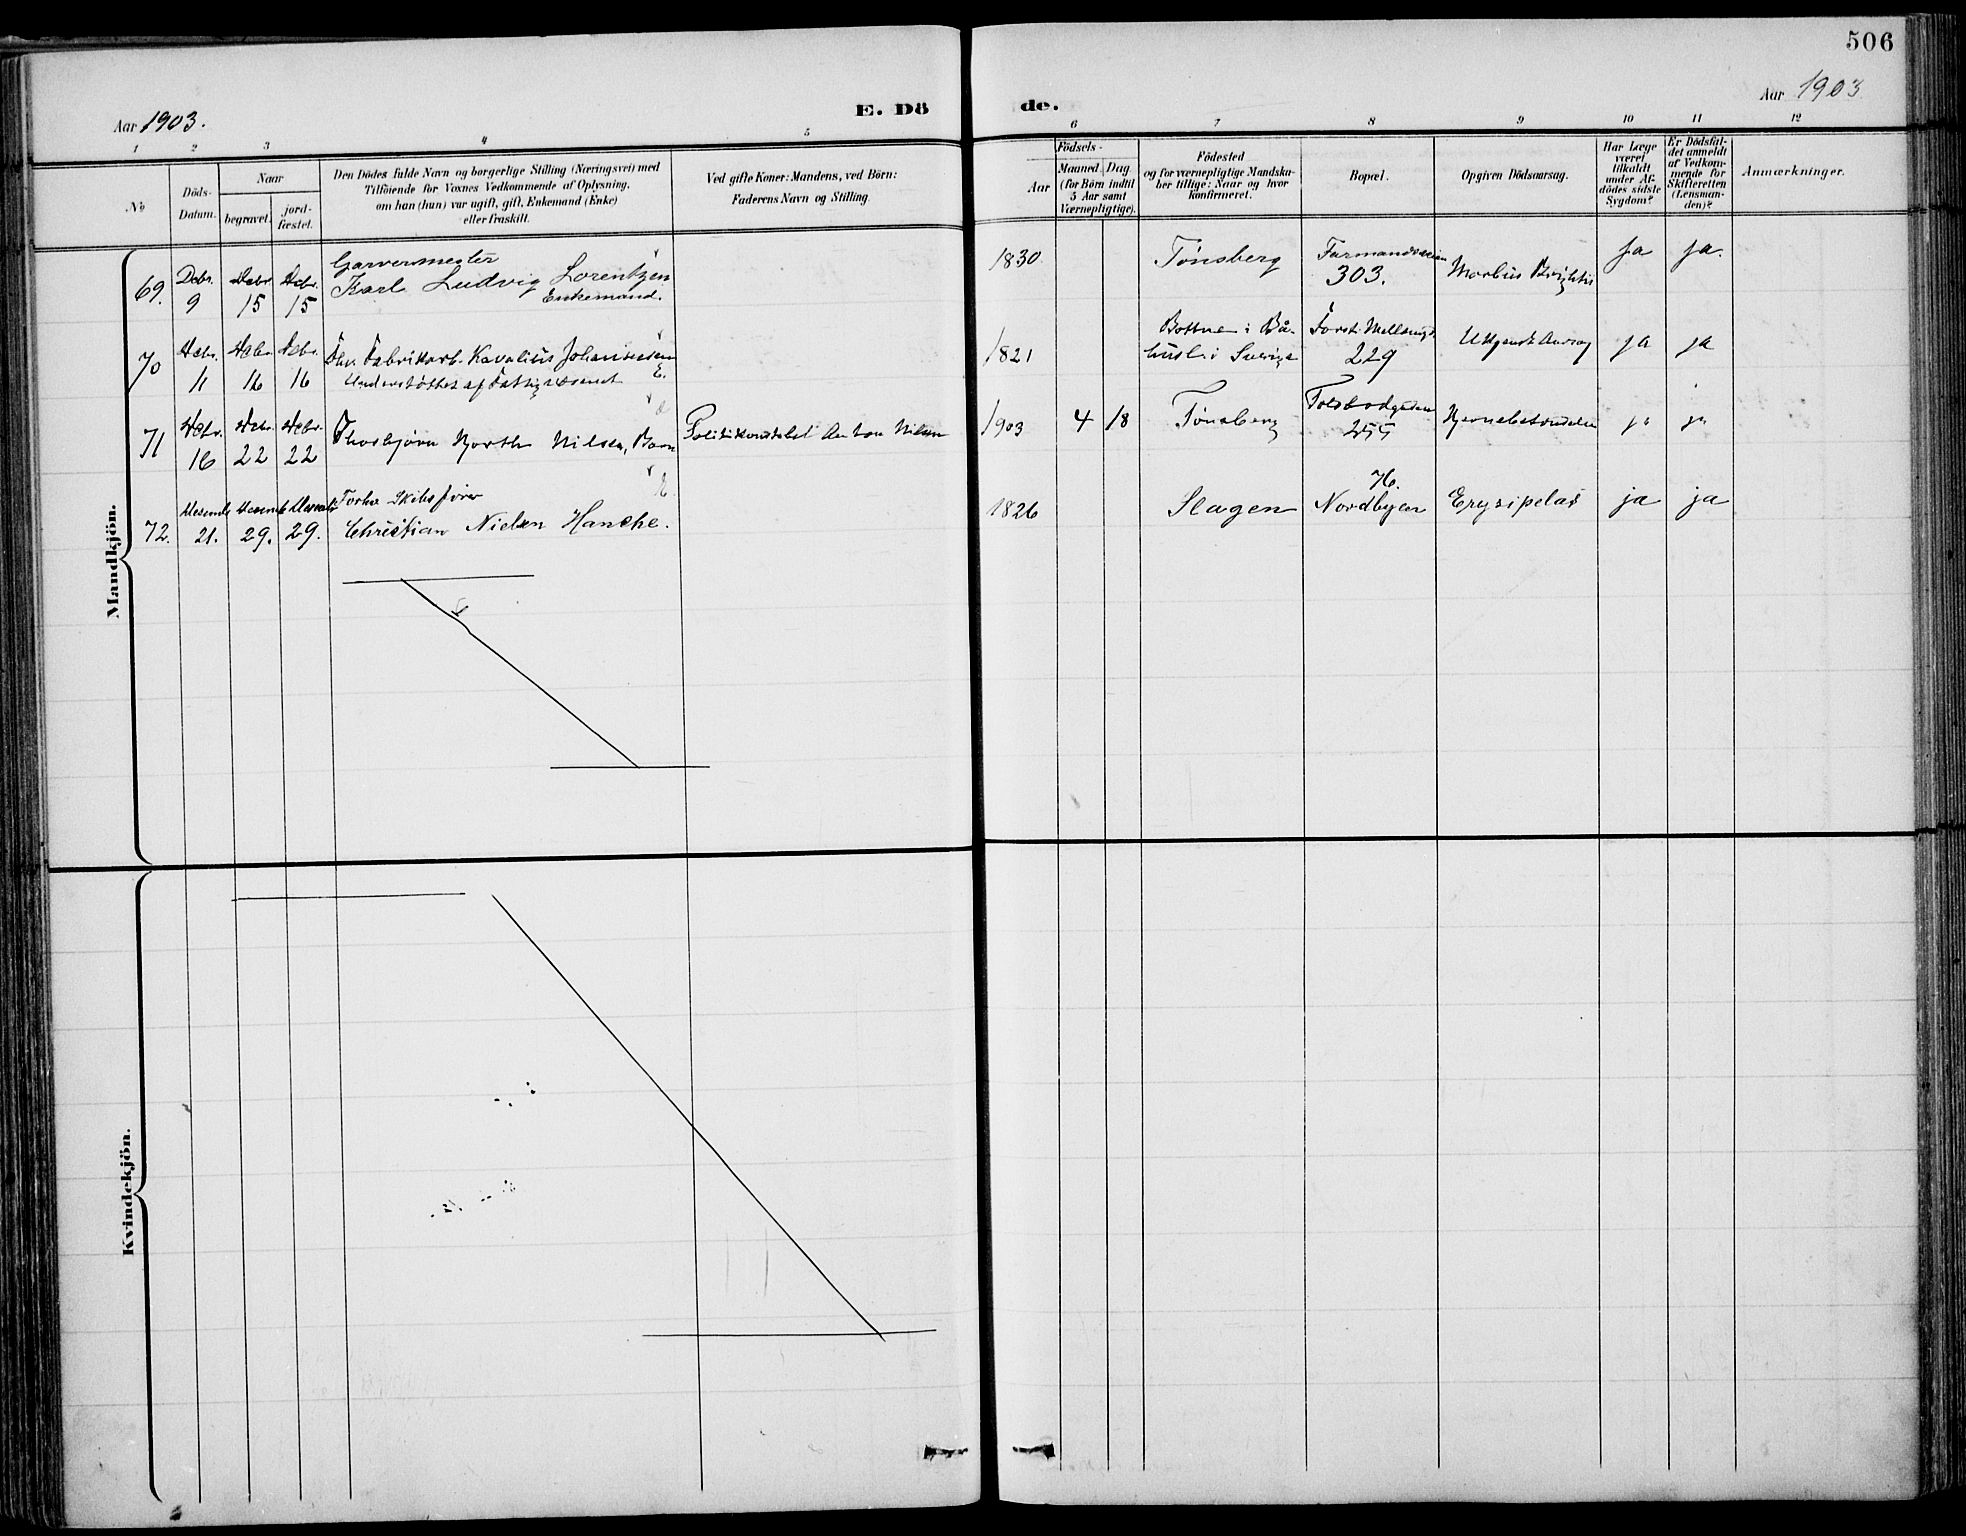 506
Aar 1903.
E. Dö
de.
Aar 1903
1 2 3 4 5
6 7 8 9 10 11 12
No
Döds-
Datum.
Naar
begravet.
jord-
fæstet.
Den Dödes fulde Navn og borgerlige Stilling (Næringsvei) med
Tilföiende for Voxnes Vedkommende af Oplysning,
om han (hun) var ugift, gift, Enkemand (Enke)
eller fraskilt.
Ved gifte Koner: Mandens, ved Börn:
Faderens Navn og Stilling.
Födsels-
Aar
Maaned. Dag.
(for Börn indtil
5 Aar samt
Værnepligtige).
Födested
og for værnepligtige Mandska-
ber tillige: Naar og hvor
konfirmeret.
Bopæl.
Opgiven Dödsaarsag.
Har Læge
været
tilkaldt
under Af-
dödes sidste
Sygdom?
Er Dödsfal-
det anmeldt
af Vedkom-
mende for
Skifteretten
(Lensman-
den)?
Anmærkninger.
Mandkjön.
69.
Debr.
9
Debr.
15
Debr.
15
Garvermester
Karl Ludvig Lorentzen
Enkemand.
1830
Tønsberg
Farmandsveien
303.
Morbus Brightii
ja
ja.
70
Debr.
11
Debr.
16
Debr.
16
Fabrikarb. Kavalius Johannesen
Understøttet af Fattigvæsenet E.
1821
Bottna i Bå-
huslän i Sverige
229
ja
ja
71
Debr.
16
Debr.
22
Debr.
22
Thorbjørn Hjorth Nilsen, Barn
Politikonstabel Anton Nilsen
1903
4
18
Tønsberg
Toldbodgaden
255
Hjernebetændelse
ja
ja
72.
Decemb
21.
Decemb
29.
Decemb
29.
Forhv Skibsfører
Christian Nielsen Hanche.
E.
1826
Slagen
76.
Nordbyen
Erysipelas
ja
ja
Kvindekjön.